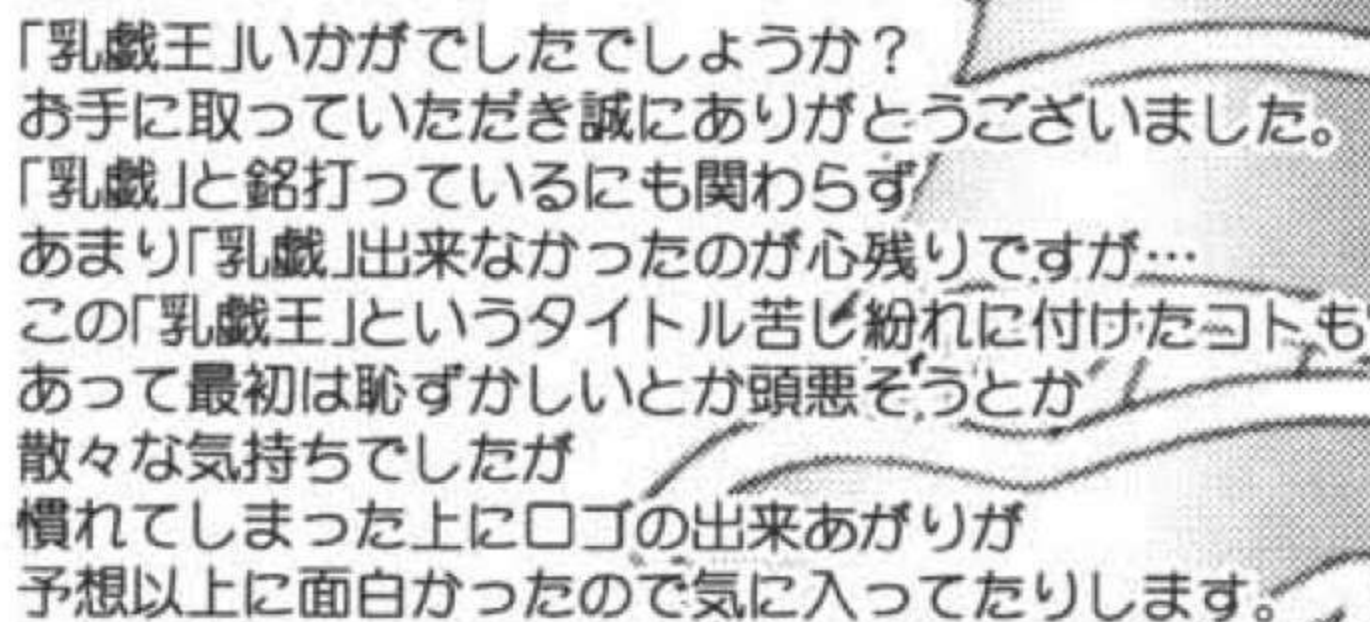 「乳戯王」いかがでしたでしょうか?
お手に取っていただき誠にありがとうございました。
「乳戯」と銘打っているにも関わらず
あまり「乳戯」出来なかったのが心残りですが…
この「乳戯王」というタイトル苦し紛れに付けたコトも
あって最初は恥ずかしいとか頭悪そうとか
散々な気持ちでしたが
慣れてしまった上にロゴの出来あがりが
予想以上に面白かったので気に入ってたりします。